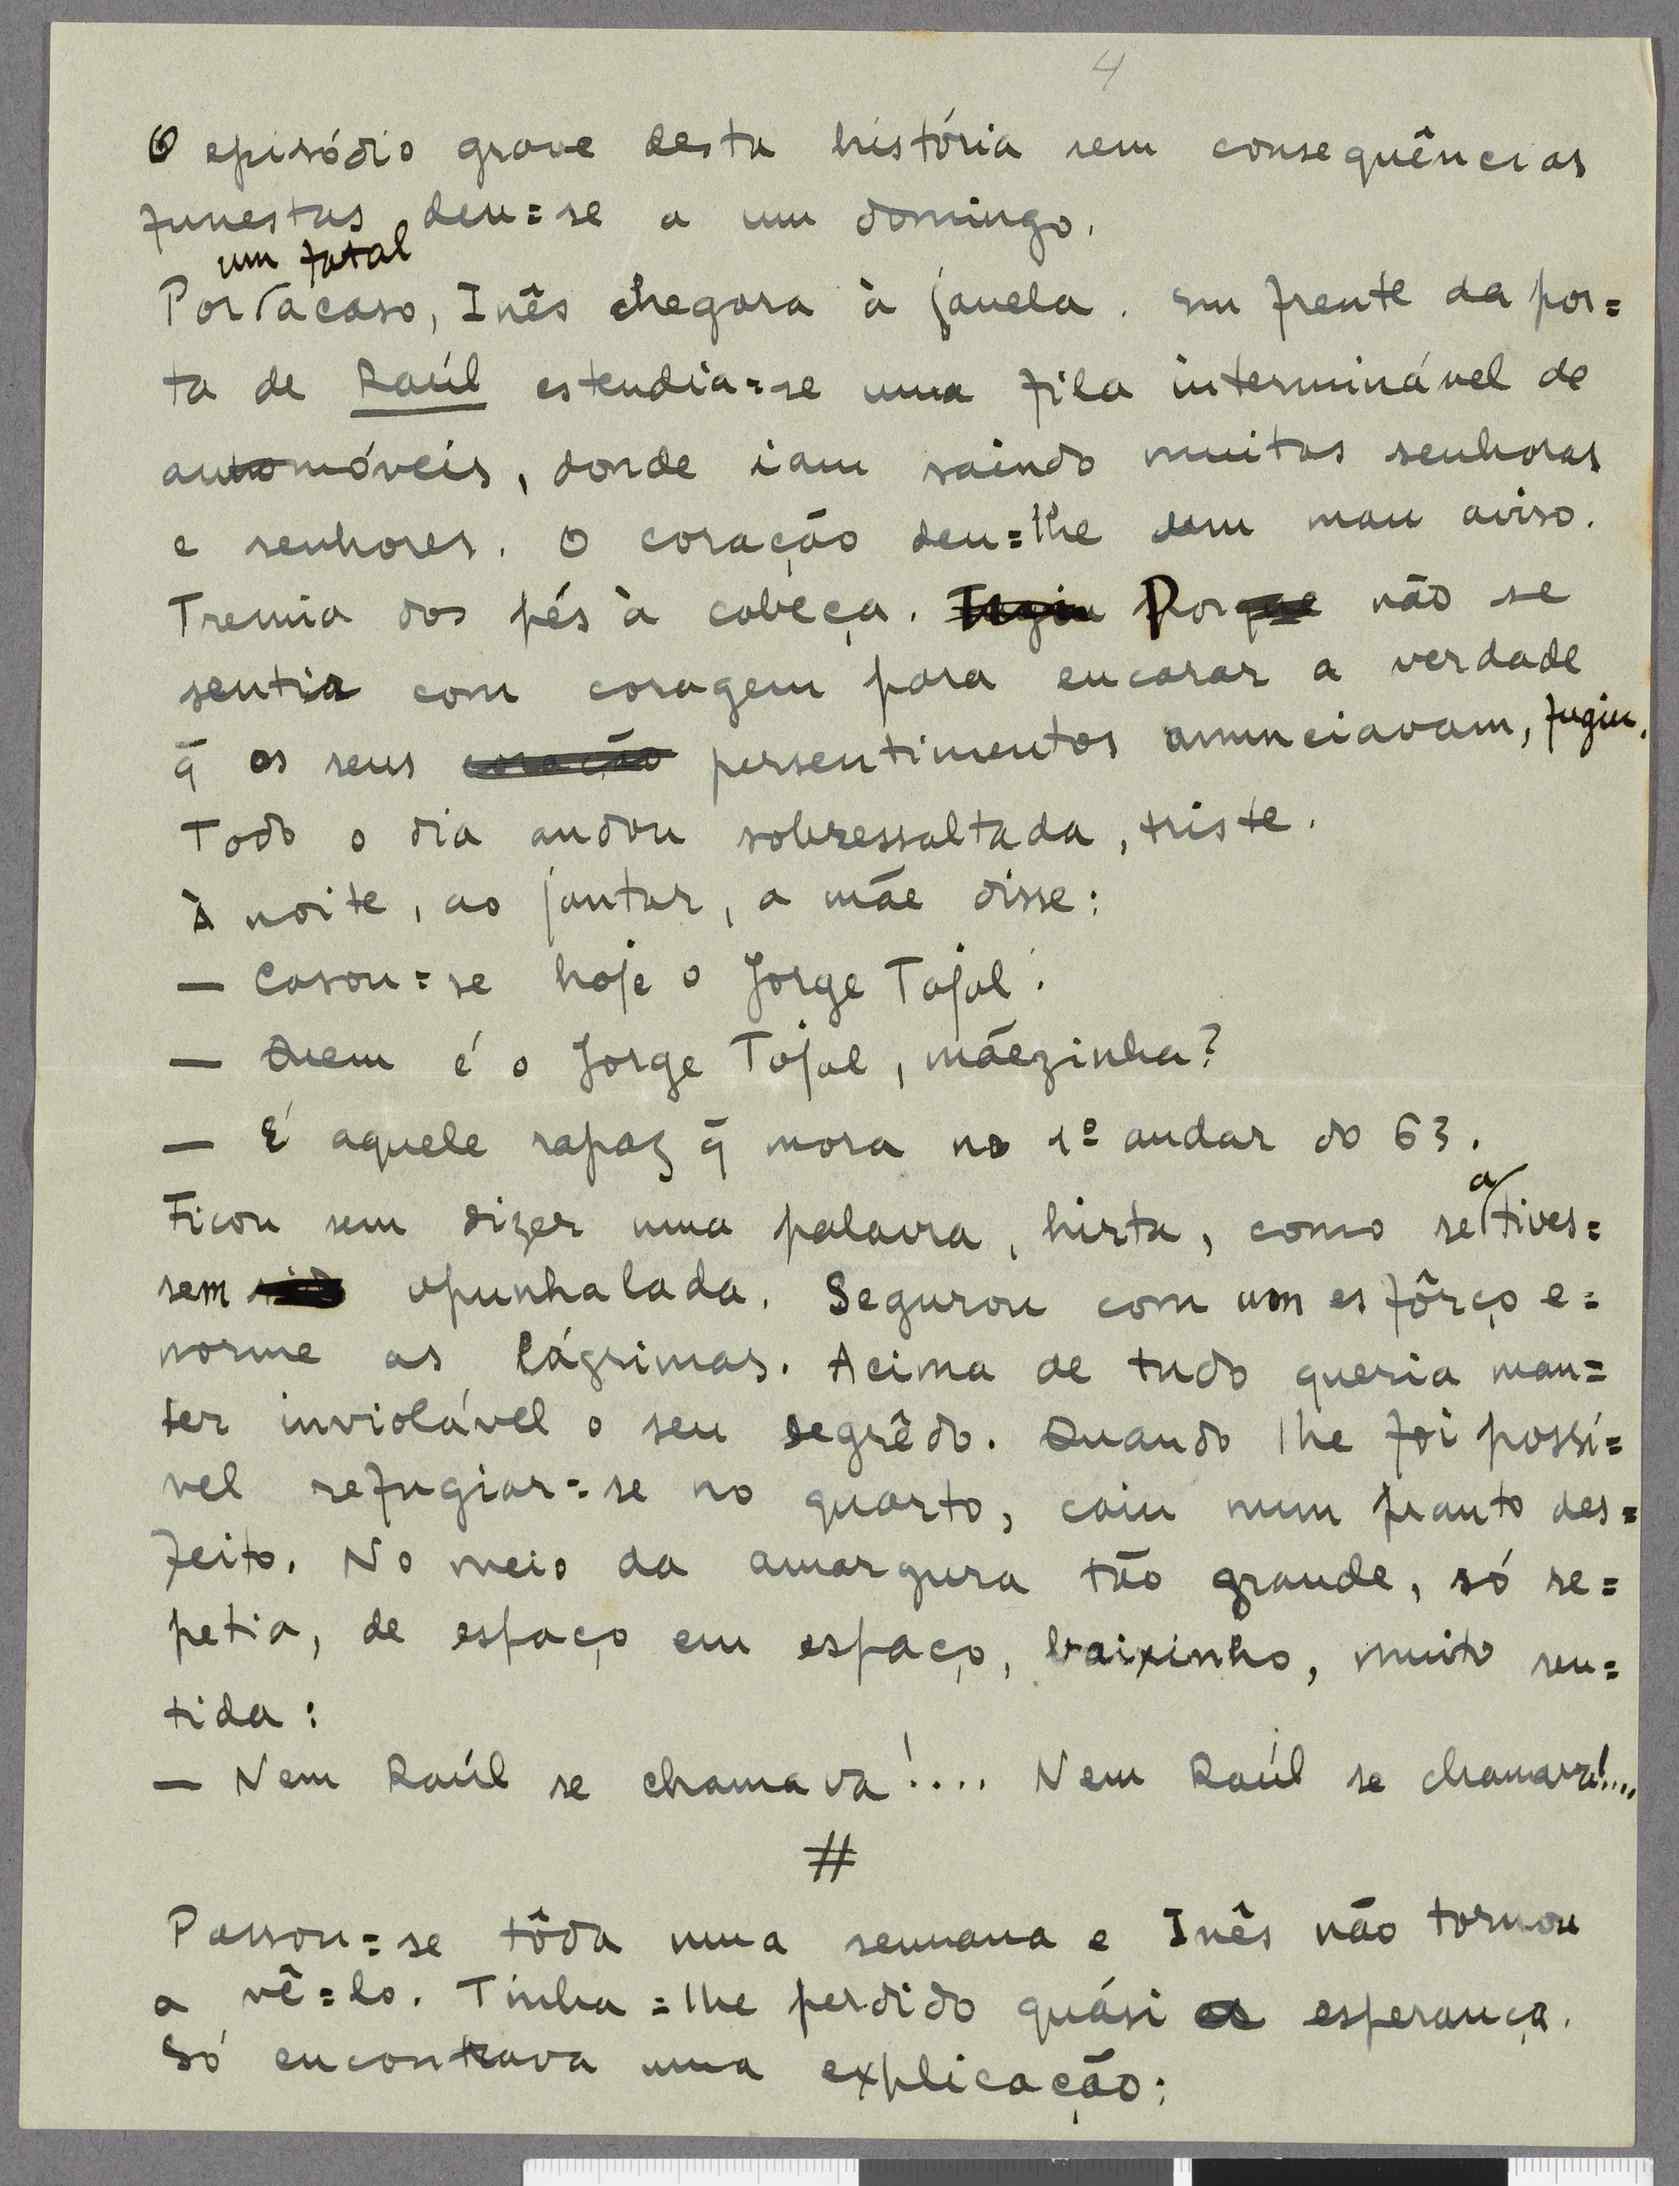 4
O episódio grave desta história sem consequências
funestas deu=se a um domingo.
um fatal
Por acaso, Inês chegara à janela. Em frente da por=
ta de Raúl estendia=se uma fila interminável de
automóveis, donde iam saindo muitas senhoras
e senhores. O coração deu=lhe um mau aviso.
Tremia dos pés à cabeça. Fugiu Porque não se
sentia com coragem para encarar a verdade
q̃ os seus coração persentimentos anunciavam, fugiu.
Todo o dia andou sobressaltada, triste.
À noite, ao jantar, a mãe disse:
— Casou=se hoje o Jorge Tojal.
— Quem é o Jorge Tojal, mãezinha?
— É aquele rapaz q̃ mora no 1º andar do 63.
a
Ficou sem dizer uma palavra, hirta, como se tives=
sem sido apunhalada. Segurou com um esfôrço e=
norme as lágrimas. Acima de tudo queria man=
ter inviolável o seu segrêdo. Quando lhe foi possí=
vel refugiar=se no quarto, caiu num pranto des=
feito. No meio da amargura tão grande, só re=
petia, de espaço em espaço, baixinho, muito sen=
tida:
— Nem Raúl se chamava!.... Nem Raúl se chamava!....
#
Passou=se tôda uma semana e Inês não tornou
a vê=lo. Tinha=lhe perdido quási a esperança.
Só encontrava uma explicação: